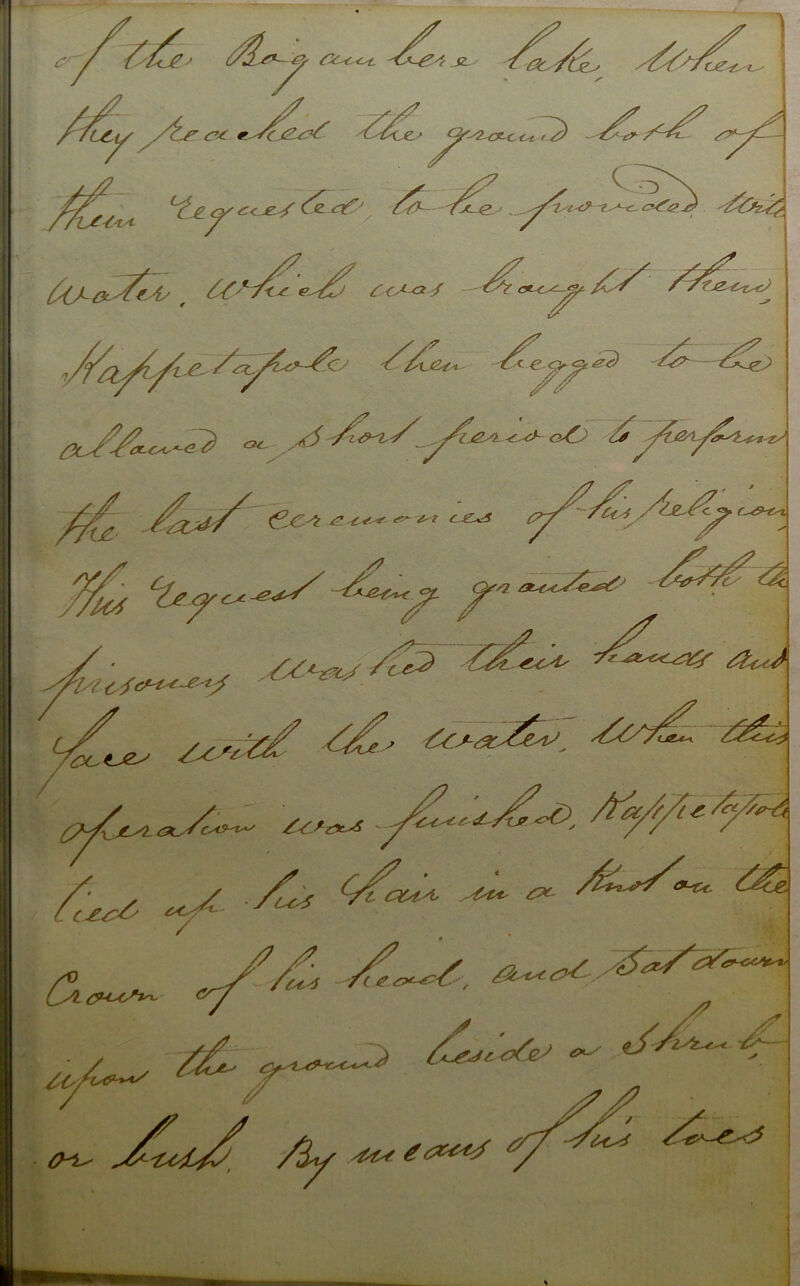 of the Bogambere lake, When
they reached the ground both of
them requested, to be provided with
water, which was brought them,
Kappetapole then begged to be
allowed a short period to perform
the last ceremonies of his religion,
This request being granted both the
prisoners washed their hands and
face with the water, When this
operation was finished, Kappetapole
tied up his hair in a Knot on the
Crown of his head, and Sat down
upon the ground beside a Shrub
or bush. By means of his toes